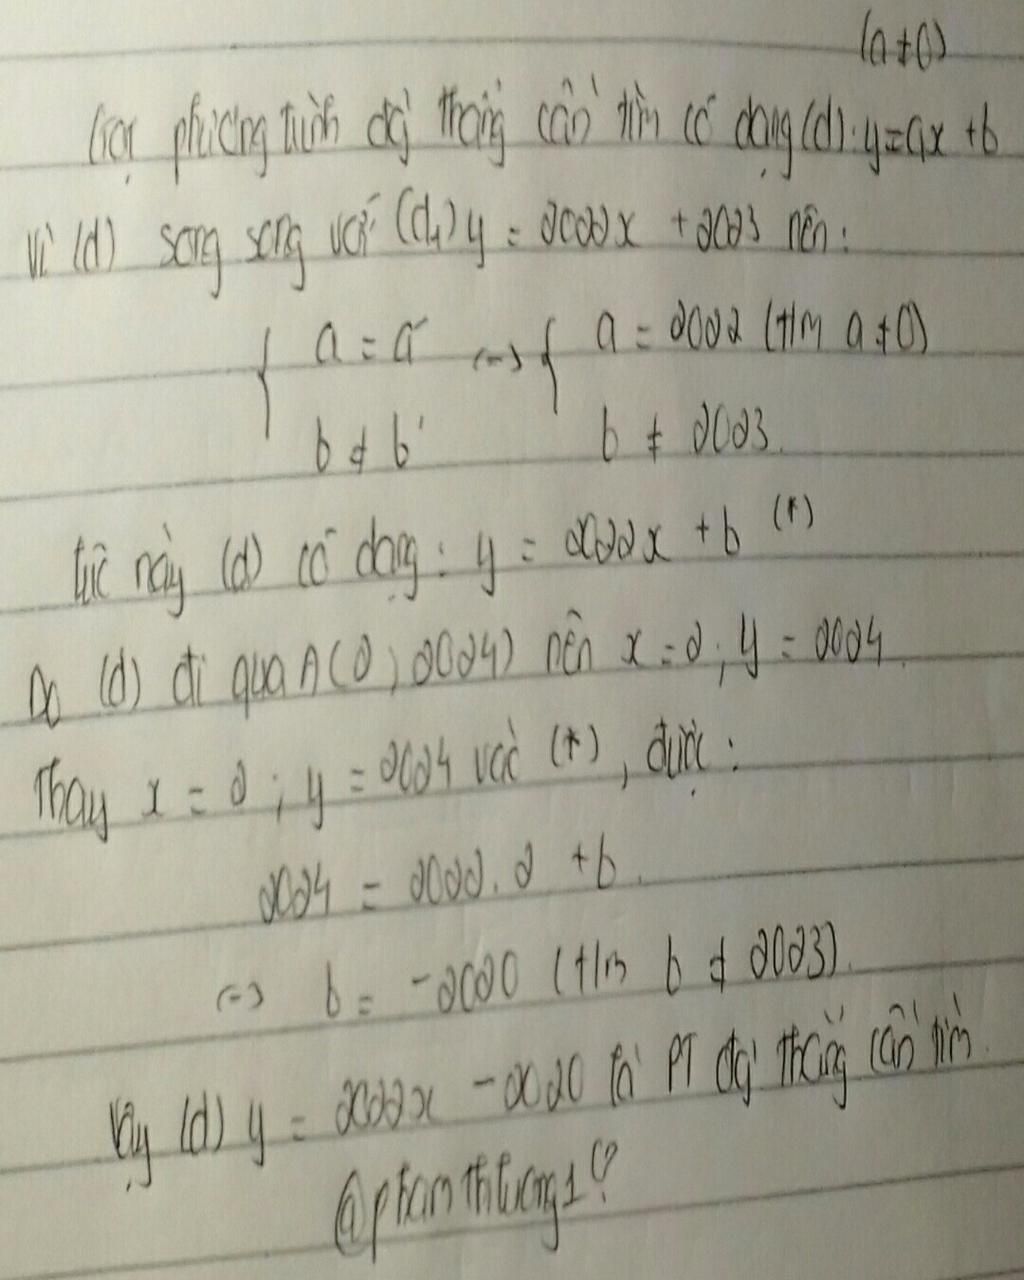 (a≠0)
Gọi phương trình đg' thẳng cần tìm có dạng (d): y=ax +b
Vì (d) song song với (d₁) y = 2022x + 2023 nên:
{ a = a' <=> { a = 2022 (t/m a≠0)
b ≠ b' b ≠ 2023.
Lúc này (d) có dạng: y = 2022x + b (*)
Do (d) đi qua A(2; 2024) nên x=2; y = 2024.
Thay x = 2; y = 2024 vào (*), được:
2024 = 2022.2 +b.
<=> b = -2020 (t/m b ≠ 2023).
Vậy (d) y = 2022x -2020 là PT đg' thẳng cần tìm.